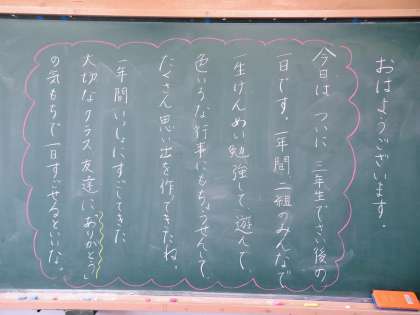 おはようございます。
今日は、ついに、三年生でさい後の
一日です。一年間、二組のみんなで
一生けんめい勉強して、遊んで、
色いろな行事にもちょうせんして、
たくさん思い出を作ってきたね。
一年間いっしょにすごしてきた
大切なクラス、友達に「ありがとう」
の気もちで一日すごせるといいな。